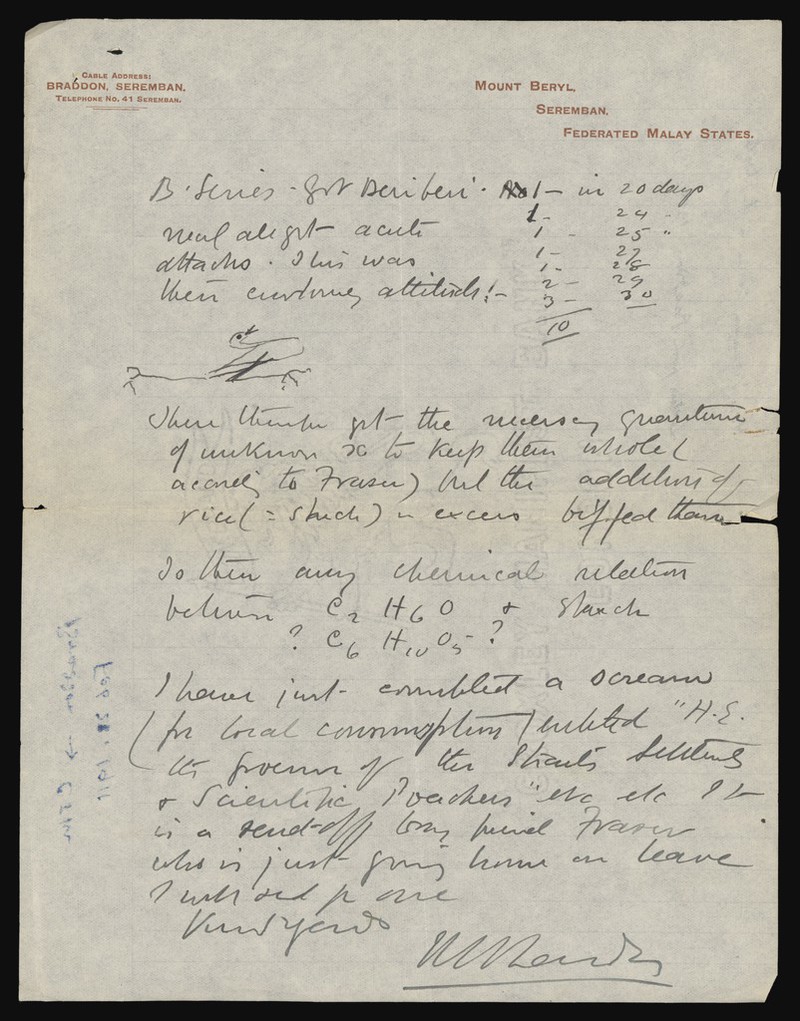 CABLE ADDRESS:
BRADDON, SEREMBAN.
TELEPHONE NO. 41 SEREMBAN.
MOUNT BERYL,
SEREMBAN.
FEDERATED MALAY STATES.
B. Series - got Beriberi. 1 - in 20 days
1 - 24 "
nearly all got acute 1 - 25 "
attacks. This was 1 - 27
1 - 28
their customary attitude! - 2 - 29
3 - 30
10
These therefore got the necessary quantum
of unknown x to keep them whole (
according to Fraser) but the addition of
rice (= starch) in excess biffed them
Is there any chemical relation
between C2 H6 O & Starch
? C6 H10 O5 ?
I have just completed a scream
(for local consumption) entitled "H.E.
the Governor of the Straits Settlements
& Scientific Poachers" etc etc It
is a send-off to my friend Fraser
who is just going home on leave
I will send you one
Kind regards
Feb 28. 1911
Braddon →